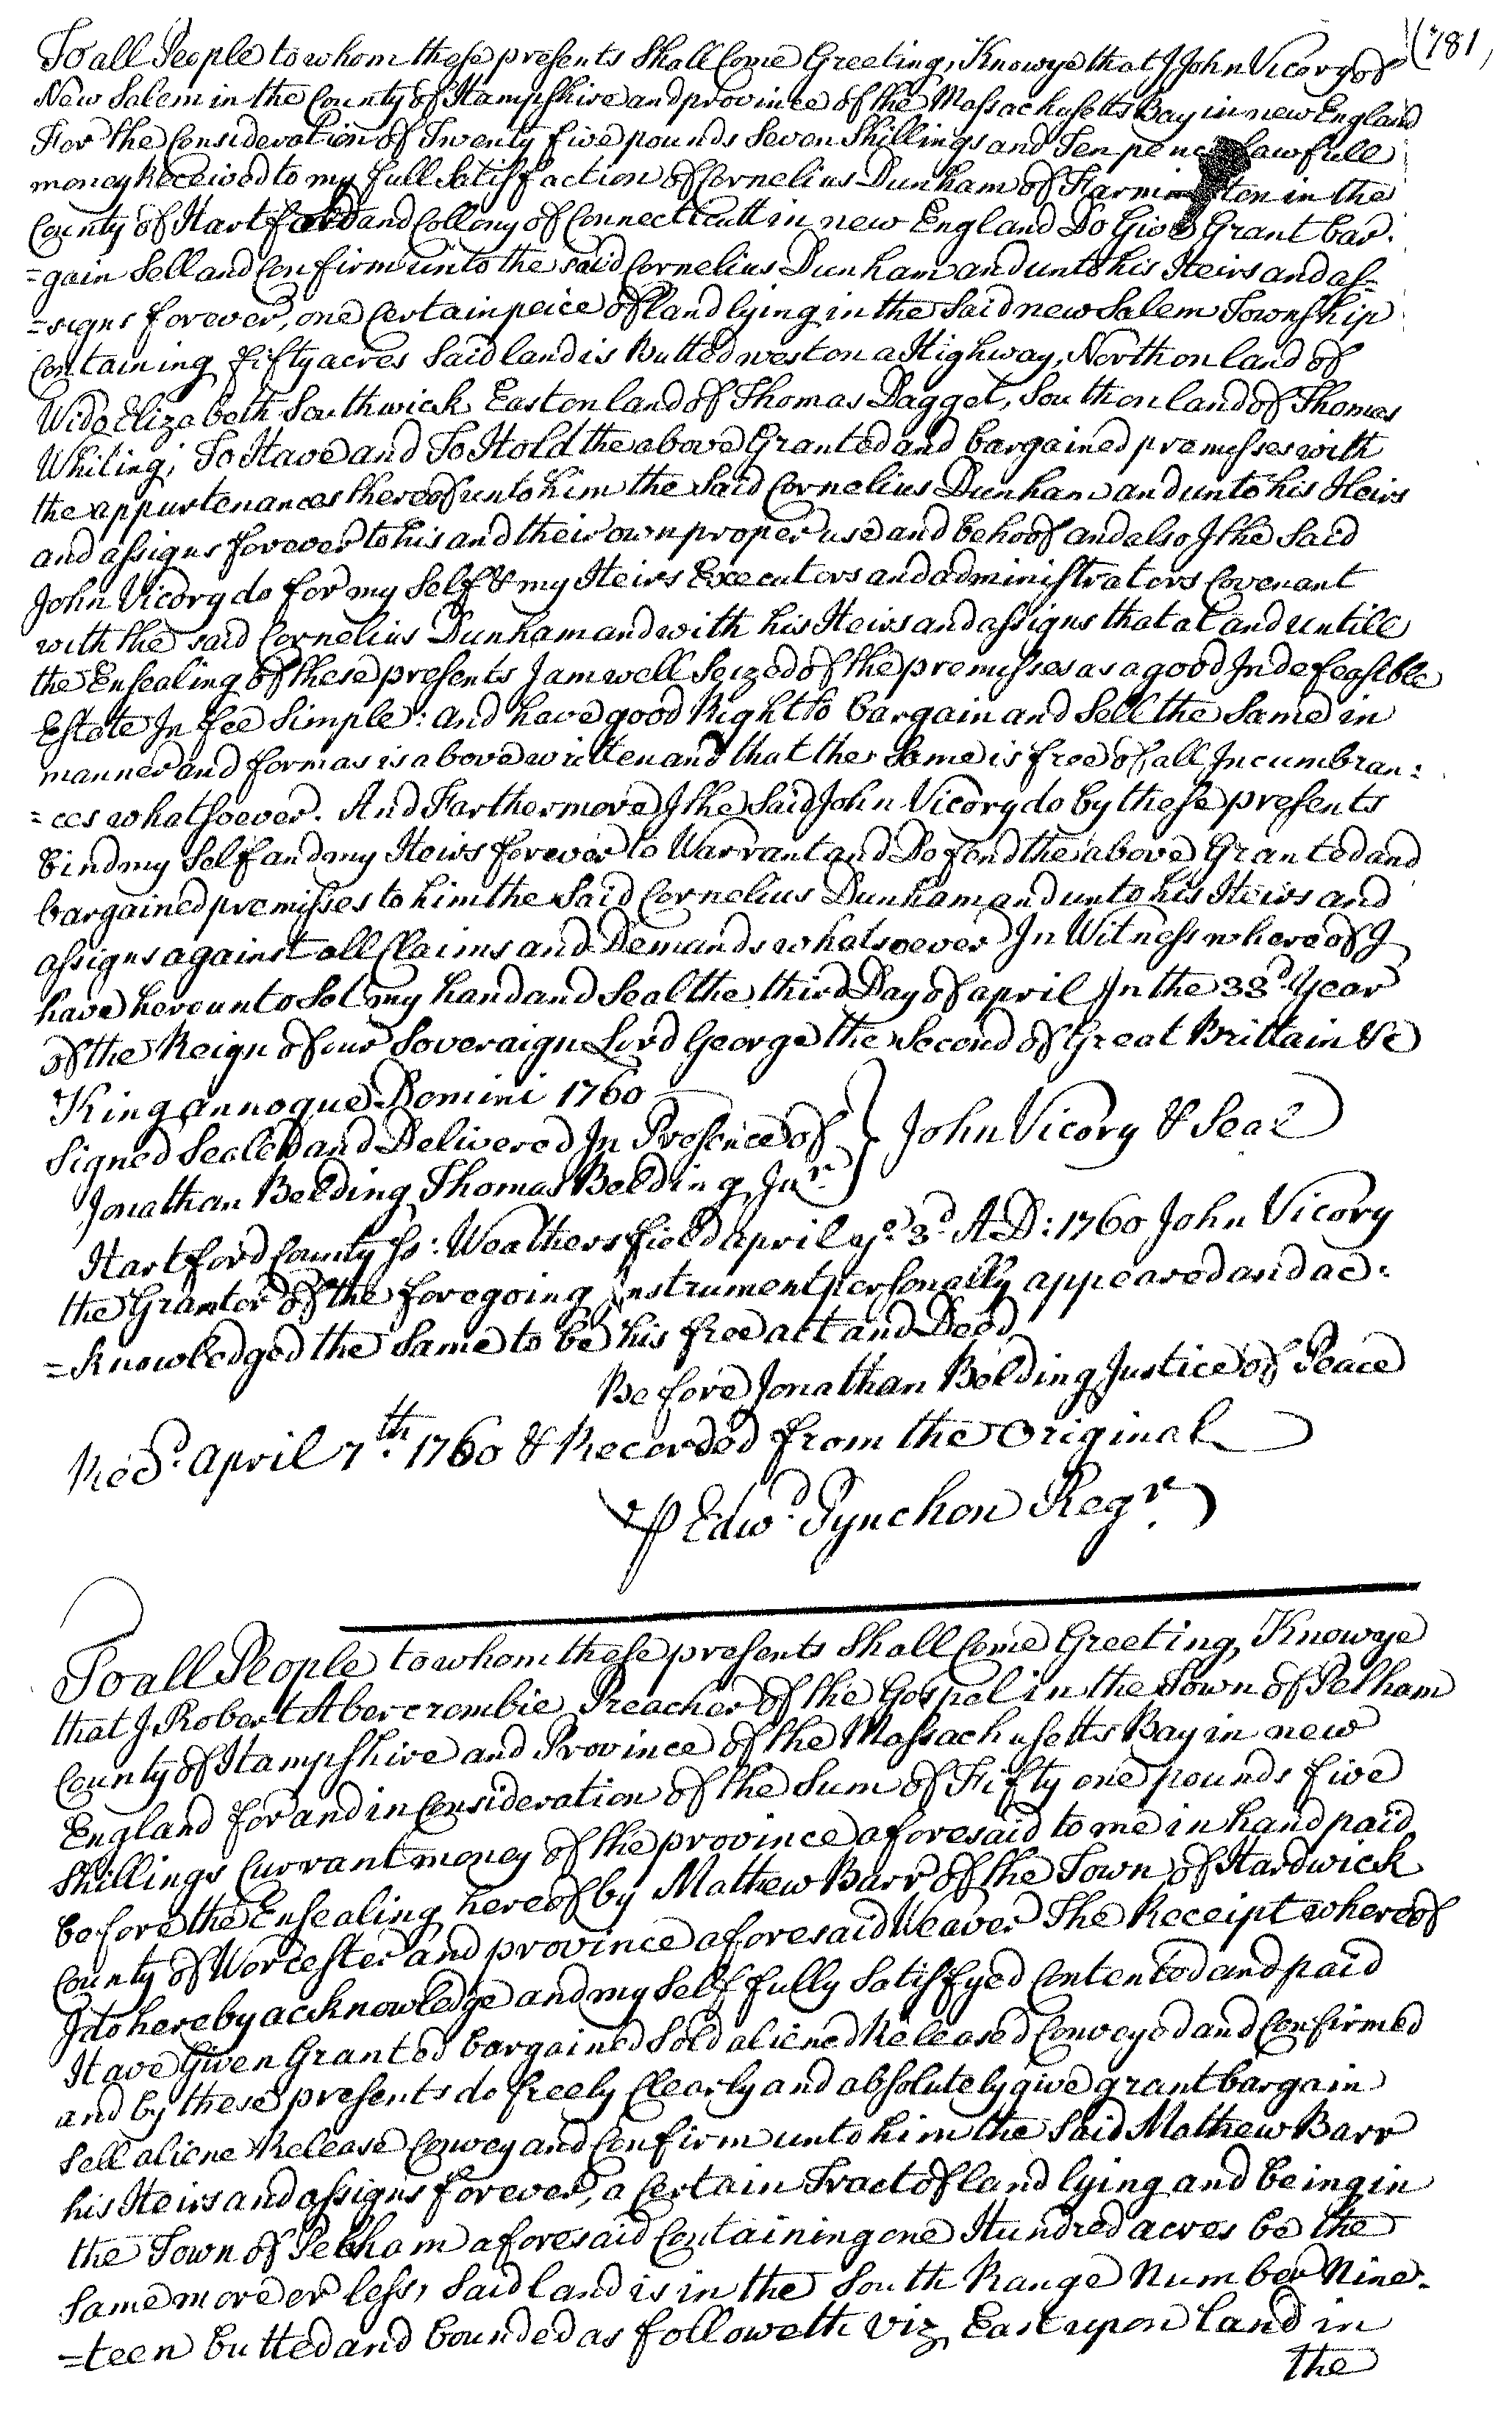 (781
To all People to whom these presents Shall Come Greeting, Know ye that I John Vicory of
New Salem in the County of Hampshire and province of the Massachusetts Bay in new England
For the Consideration of Twenty five pounds Seven Shillings and Ten pence Lawfull
money Received to my full Satisfaction of Cornelius Dunham of Farmington in the
County of Hartford and Collony of Connecticutt in new England Do Give Grant bar-
=gain Sell and Confirm unto the said Cornelius Dunham and unto his Heirs and as=
=signs forever, one Certain peice of land lying in the Said new Salem Township
Containing fifty acres Said land is Butted west on a Highway, North on land of
Wido Elizabeth Southwick East on land of Thomas Dagget, South on land of Thomas
Whiting; To Have and To Hold the above Granted and bargained premisses with
the appurtenances thereof unto him the Said Cornelius Dunham and unto his Heirs
and assigns forever to his and their own proper use and behoof and also I the Said
John Vicory do for my Self & my Heirs Executors and administrators Covenant
with the said Cornelius Dunham and with his Heirs and assigns that at and untill
the Ensealing of these presents I am well Seized of the premisses as a good Indefeasible
Estate In fee Simple: and have good Right to bargain and Sell the Same in
manner and form as is above written and that the Same is free of all Incumbran=
=ces whatsoever. And Farthermore I the Said John Vicory do by these presents
bind my Self and my Heirs forever to Warrant and Defend the above Granted and
bargained premisses to him the Said Cornelius Dunham and unto his Heirs and
assigns against all Claims and Demands whatsoever In Witness whereof I
have hereunto Set my hand and Seal the third Day of april In the 33d. Year
of the Reign of our Soveraign Lord George the Second of Great Brittain &c
King annoque Domini 1760
Signed Sealed and Delivered In Presence of } John Vicory & Seal
Jonathan Belding Thomas Belding Junr.
Hartford County ss: Weathersfield april ye. 3d. A.D: 1760 John Vicory
the Grantor of the foregoing instrument personally appeared and ac=
=knowledged the Same to be his free act and Deed
Before Jonathan Belding Justice of Peace
Recd. april 7th. 1760 & Recorded from the Original
℔ Edwd. Pynchon Regr.
To all People to whom these presents Shall Come Greeting, Know ye
that I Robert Abercrombie Preacher of the Gospel in the Town of Pelham
County of Hampshire and Province of the Massachusetts Bay in new
England for and in Consideration of the Sum of Fifty one pounds five
Shillings Currant money of the province aforesaid to me in hand paid
before the Ensealing hereof by Mathew Barr of the Town of Hardwick
County of Worcester and province aforesaid Weaver The Receipt whereof
I do hereby acknowledge and my Self fully Satisfyed Contented and paid
Have Given Granted bargained Sold aliened Released Conveyed and Confirmed
and by these presents do freely Clearly and absolutely give grant bargain
Sell aliene Release Convey and Confirm unto him the Said Mathew Barr
his Heirs and assigns forever, a Certain Tract of land lying and being in
the Town of Pelham aforesaid Containing one Hundred acres be the
Same more or less, Said land is in the South Range Number Nine-
=teen butted and bounded as followeth viz, East upon land in
the